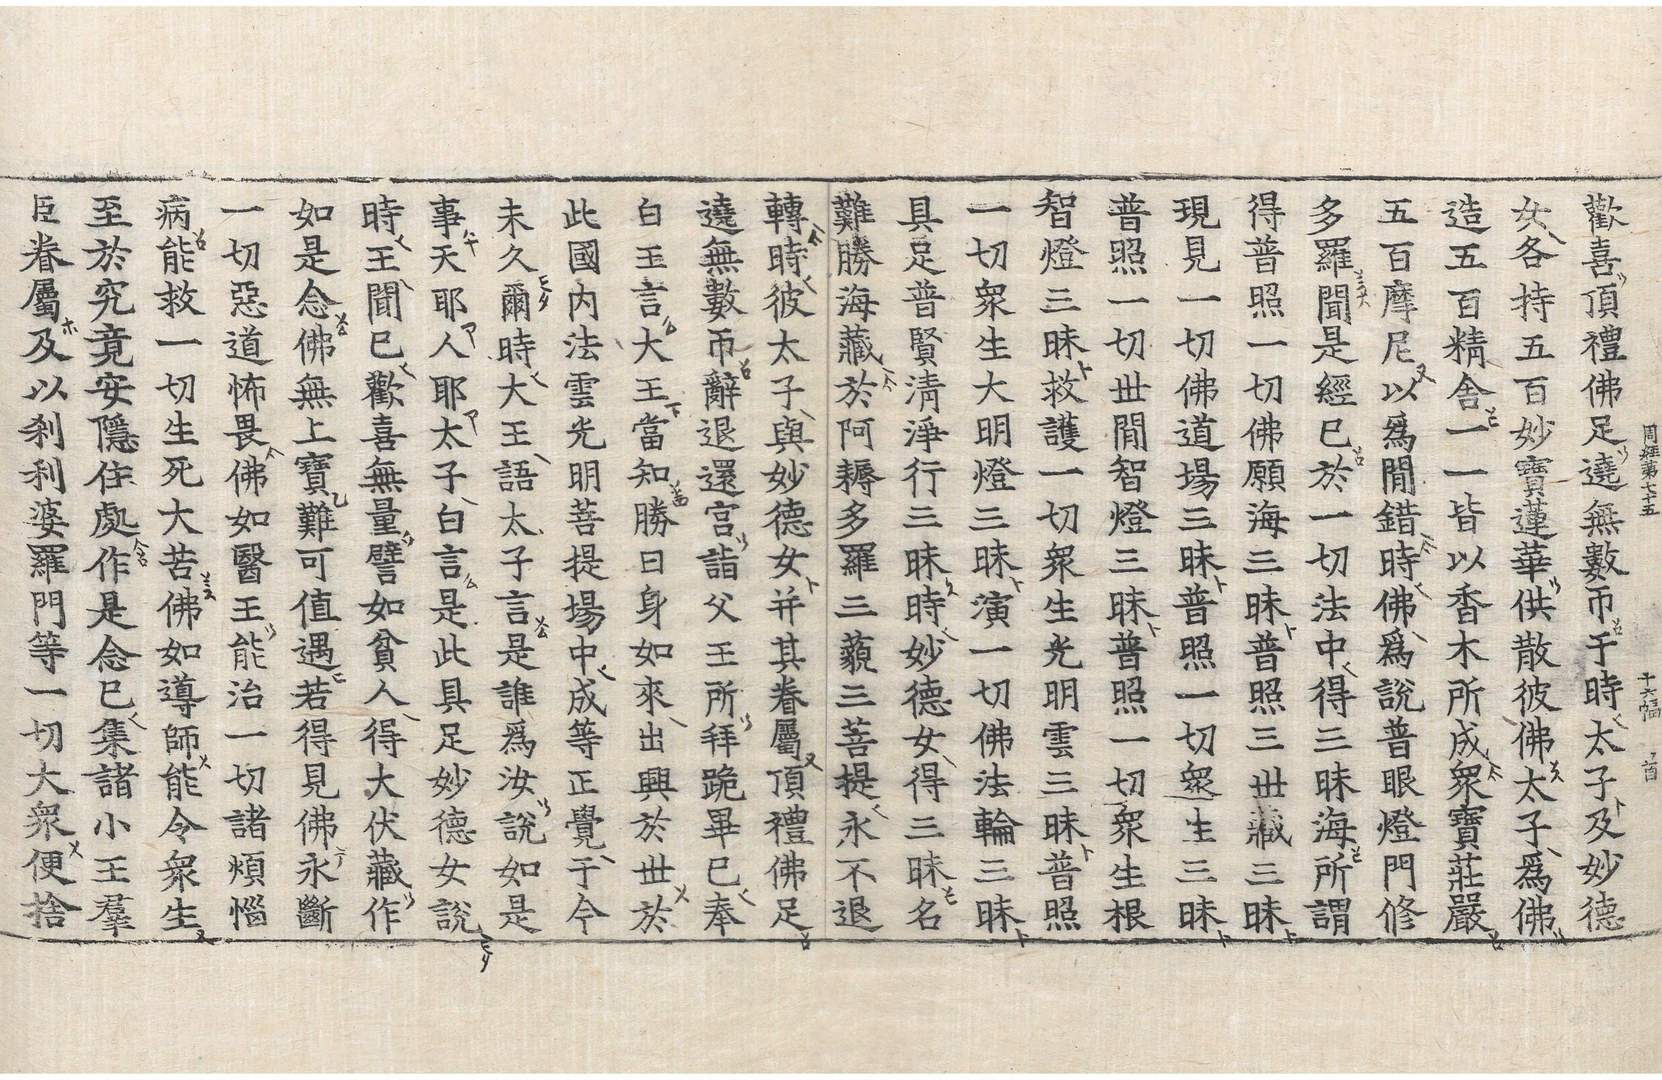 周經第七十五 十六幅
歡喜頂禮佛足遶無數帀于時太子及妙德
女各持五百妙寶蓮華供散彼佛太子爲佛
造五百精舍一一皆以香木所成衆寶莊嚴
五百摩尼以爲間錯時佛爲說普眼燈門修
多羅聞是經已於一切法中得三昧海所謂
得普照一切佛願海三昧普照三世藏三昧
現見一切佛道場三昧普照一切衆生三昧
普照一切世間智燈三昧普照一切衆生根
智燈三昧救護一切衆生光明雲三昧普照
一切衆生大明燈三昧演一切佛法輪三昧
具足普賢清淨行三昧時妙德女得三昧名
難勝海藏於阿耨多羅三藐三菩提永不退
轉時彼太子與妙德女并其眷屬頂禮佛足
遶無數帀辭退還宮詣父王所拜跪畢已奉
白王言大王當知勝日身如來出興於世於
此國內法雲光明菩提場中成等正覺于今
未久爾時大王語太子言是誰爲汝說如是
事天耶人耶太子白言是此具足妙德女說
時王聞已歡喜無量譬如貧人得大伏藏作
如是念佛無上寶難可值遇若得見佛永斷
一切惡道怖畏佛如醫王能治一切諸煩惱
病能救一切生死大苦佛如導師能令衆生
至於究竟安隱住處作是念已集諸小王羣
臣眷屬及以刹利婆羅門等一切大衆便捨